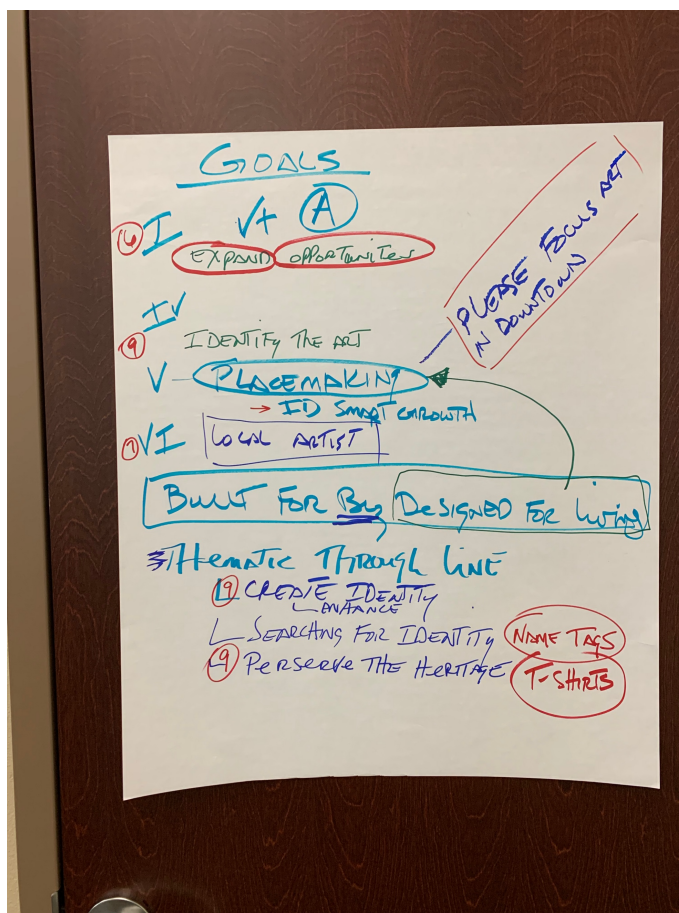 GOALS
6 I V+ A
EXPAND OPPORTUNITES
IV
PLEASE FOCUS ART
IN DOWNTOWN
9 IDENTIFY THE ART
V - PLACEMAKING
→ ID SMART GROWTH
VI LOCAL ARTIST
BUILT FOR Biz DESIGNED FOR Living
THEMATIC THROUGH LINE
9 CREATE IDENTITY
ENHANCE
SEARCHING FOR IDENTITY NAME TAGS
9 PERSERVE THE HERITAGE T-SHIRTS